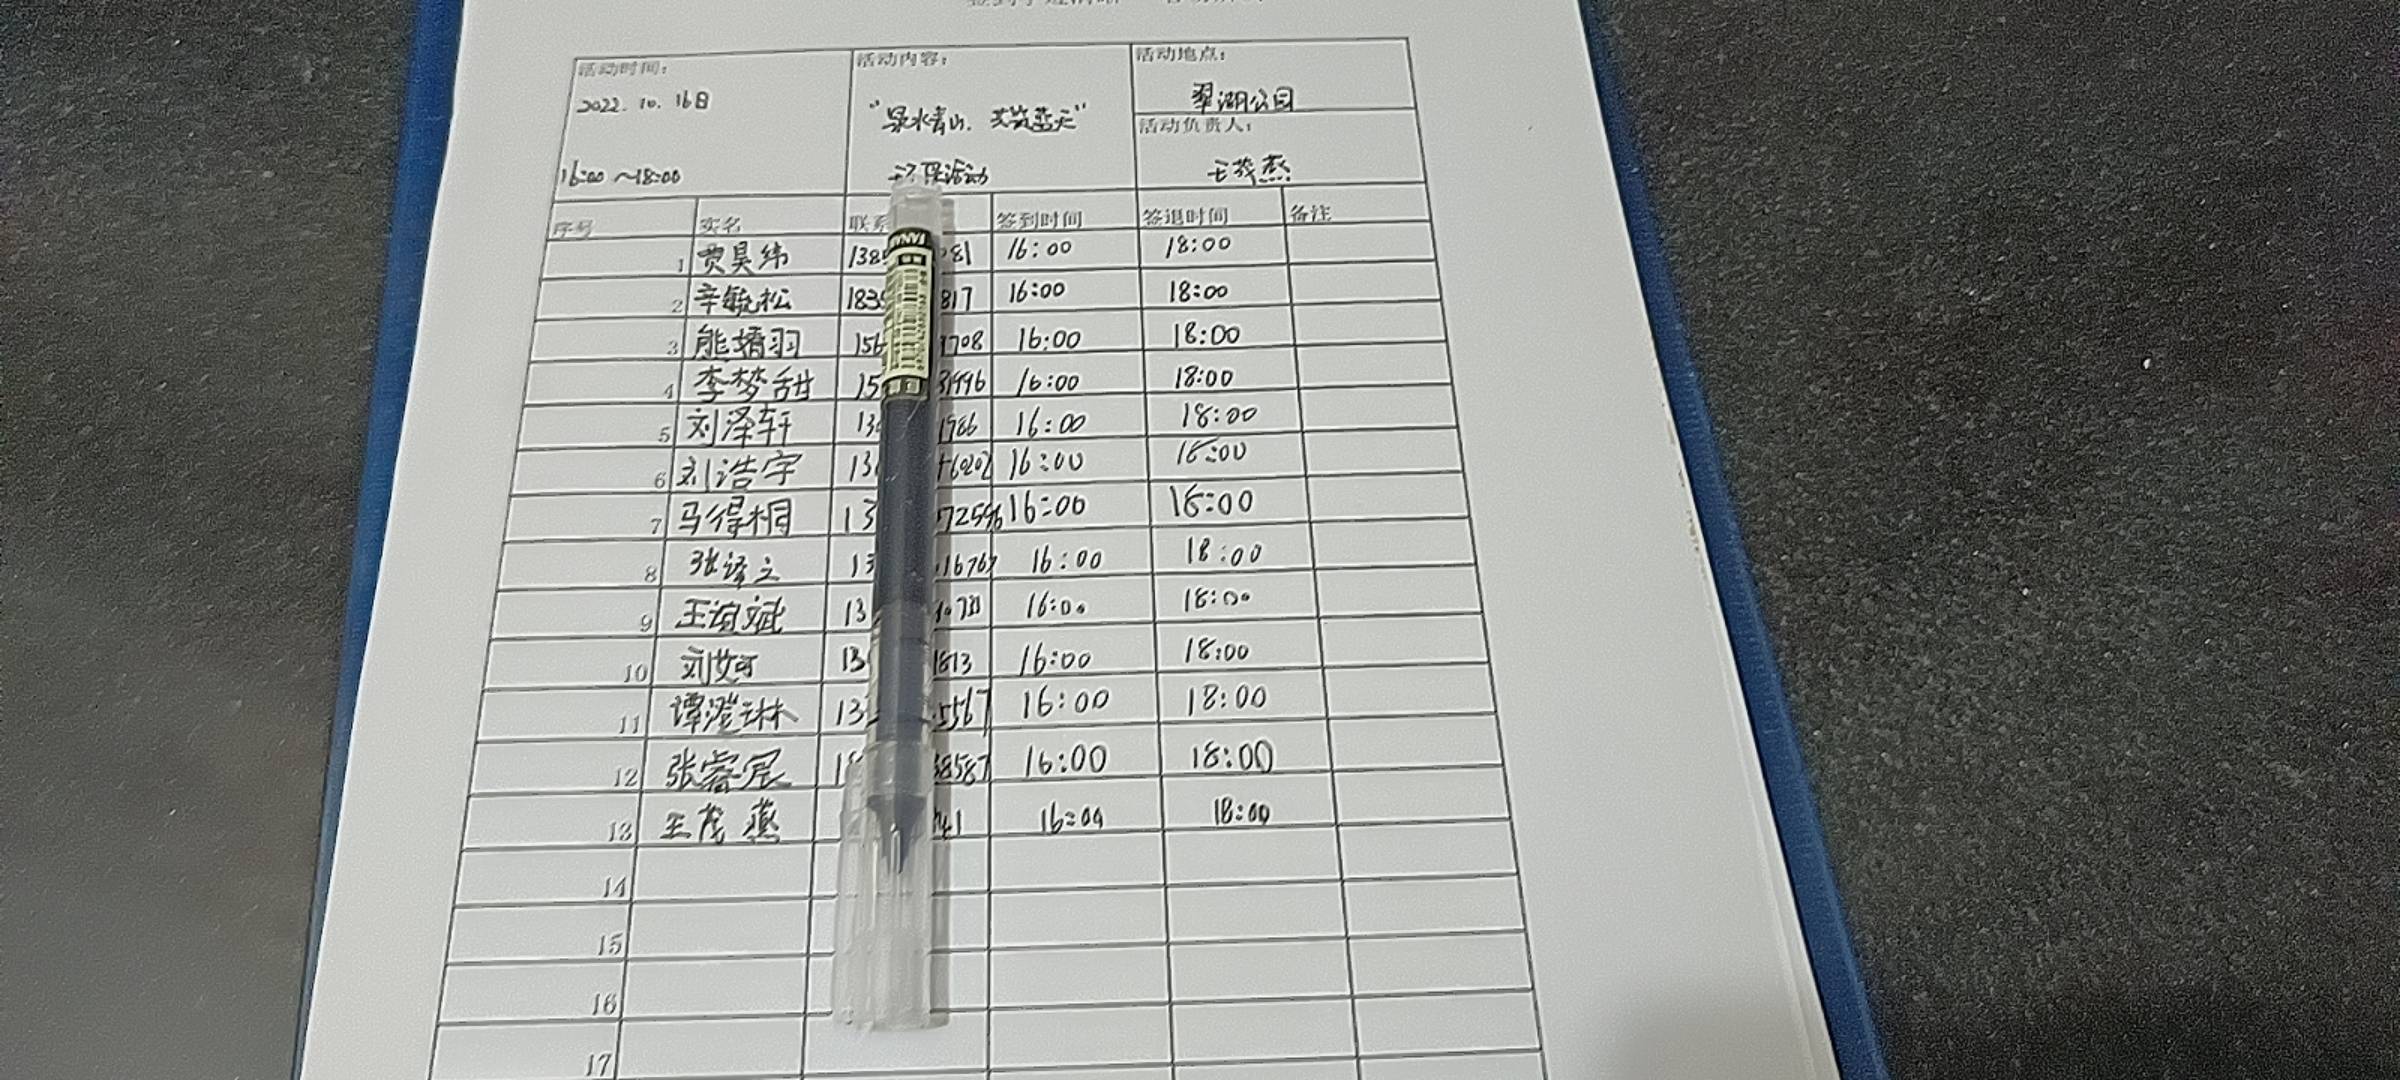 活动时间：
2022.10.16日
16:00～18:00
活动内容：
"绿水青山，共筑蓝天"
环保活动
活动地点：
翠湖公园
活动负责人：
王茂燕
序号 实名 联系 签到时间 签退时间 备注
1 贾昊纬 138 81 16:00 18:00
2 辛毓松 183 817 16:00 18:00
3 熊婧羽 156 708 16:00 18:00
4 李梦甜 15 16:00 18:00
5 刘泽轩 13 1786 16:00 18:00
6 刘浩宇 13 16:00 18:00
7 马得桐 13 16:00 18:00
8 张译文 13 16767 16:00 18:00
9 王谊斌 13 16:00 18:00
10 13 1813 16:00 18:00
11 谭澄琳 13 5567 16:00 18:00
12 张睿宸 18 38587 16:00 18:00
13 王茂燕 41 16:00 18:00
14
15
16
17